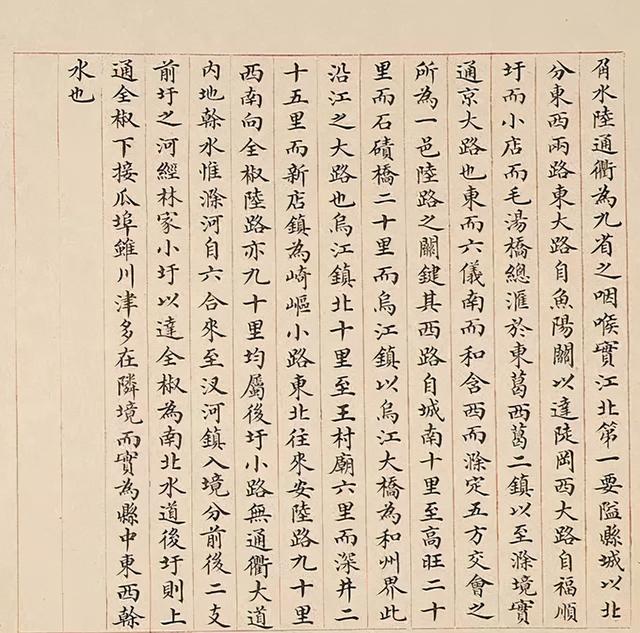 胥水陸通衢為九省之咽喉實江北第一要隘縣城以北
分東西兩路東大路自魚陽關以達陡岡西大路自福順
圩而小店而毛湯橋總滙於東葛西葛二鎮以至滁境實
通京大路也東而六儀南而和含西而滁定五方交會之
所為一邑陸路之關鍵其西路自城南十里至高旺二十
里而石磧橋二十里而烏江鎮以烏江大橋為和州界此
沿江之大路也烏江鎮北十里至王村廟六里而深井二
十五里而新店鎮為崎嶇小路東北往來安陸路九十里
西南向全椒陸路亦九十里均屬後圩小路無通衢大道
内地榦水惟滁河自六合來至汊河鎮入境分前後二支
前圩之河經林家小圩以達全椒為南北水道後圩則上
通全椒下接瓜埠雖川津多在隣境而實為縣中東西榦
水也